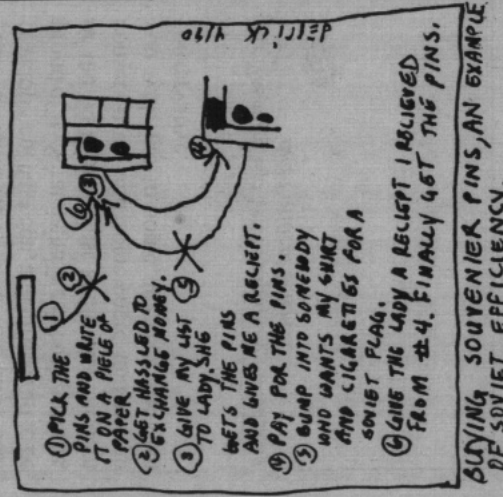 ① PICK THE
PINS AND WRITE
IT ON A PIELE OF
PAPER
② GET HASSLED TO
EXCHANGE MONEY.
③ GIVE MY LIST
TO LADY. SHE
GETS THE PINS
AND GIVES ME A RECIEPT.
④ PAY FOR THE PINS.
⑤ BUMP INTO SOMEBODY
WHO WANTS MY SHIRT
AND CIGARETTES FOR A
SOVIET FLAG.
⑥ GIVE THE LADY A RECIEPT I RECIEVED
FROM #4. FINALLY GET THE PINS.
①
②
⑥
③
④
⑤
DERRICK 4/90
BUYING SOUVENIER PINS, AN EXAMPLE
OF SOVIET EFFICIENCY.